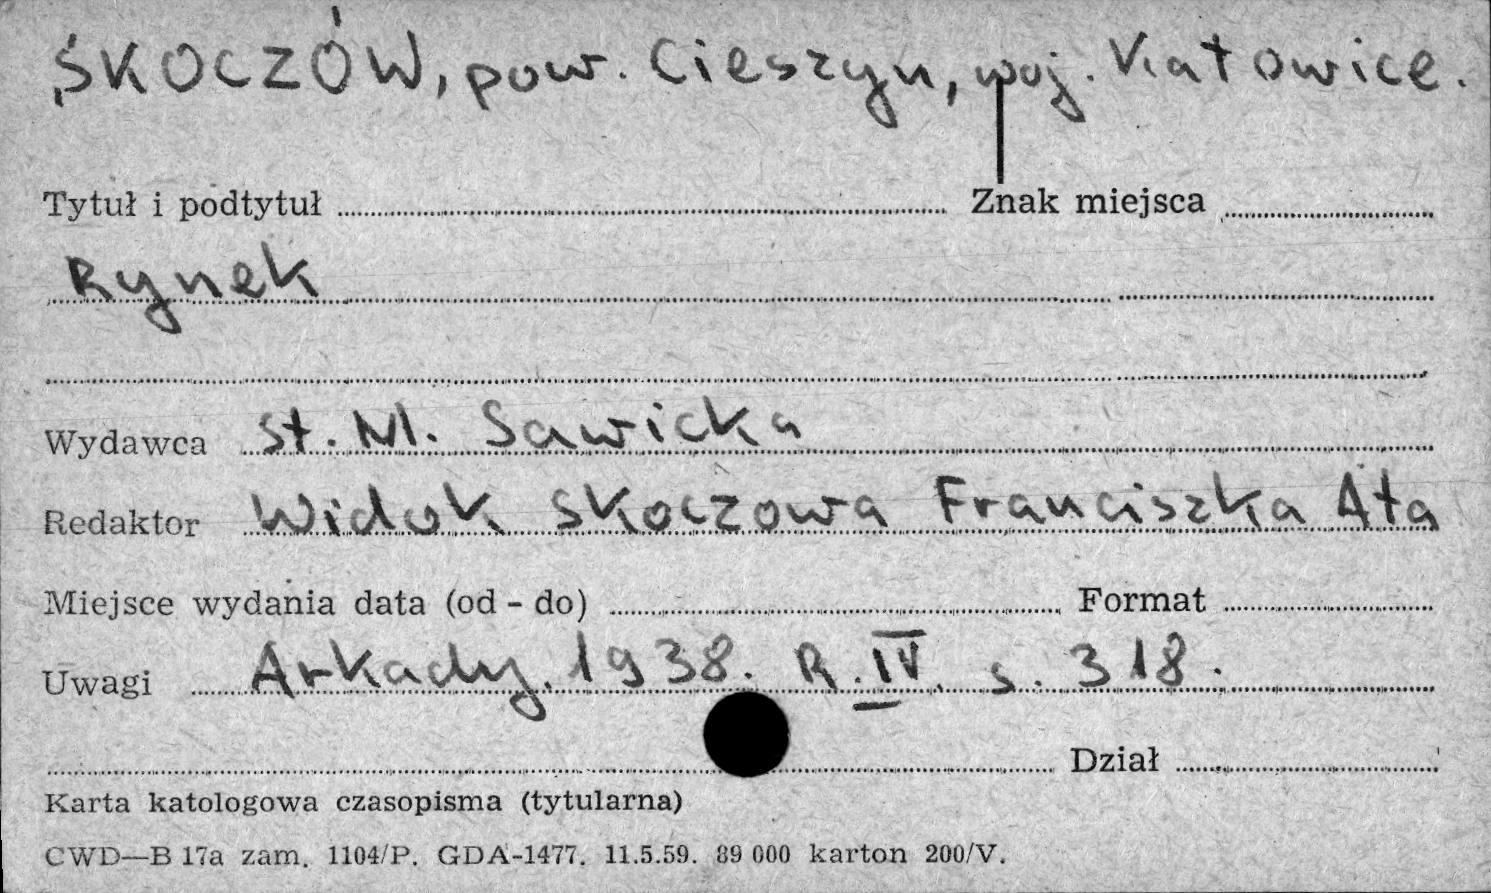 SKOCZÓW, pow. Cieszyn, woj. Katowice.
Tytuł i podtytuł Znak miejsca
Rynek
Wydawca St. M. Sawicka
Redaktor Widok Skoczowa Franciszka Ata
Miejsce wydania data (od - do) Format
Uwagi Arkady. 1938. R. IV. s. 318.
Dział
Karta katologowa czasopisma (tytularna)
CWD—B 17a zam. 1104/P. GDA-1477. 11.5.59. 89 000 karton 200/V.